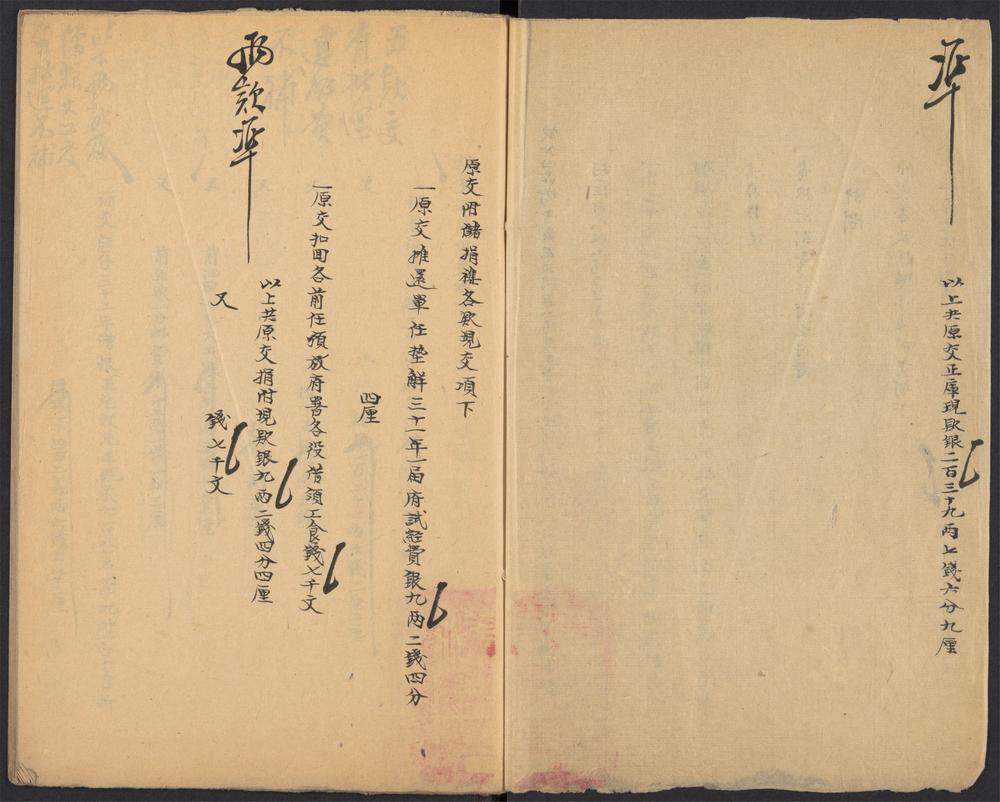 準
以上共原交正庫現款銀二百三十九兩七錢六分九厘
原交附儲捐襍各款現交項下
一原交攤還單任墊解三十一年一屆府試經費銀九兩二錢四分
四厘
一原交扣回各前任預放府署各役借領工食錢七千文
以上共原交捐附現款銀九兩二錢四分四厘
又　錢七千文
兩款準